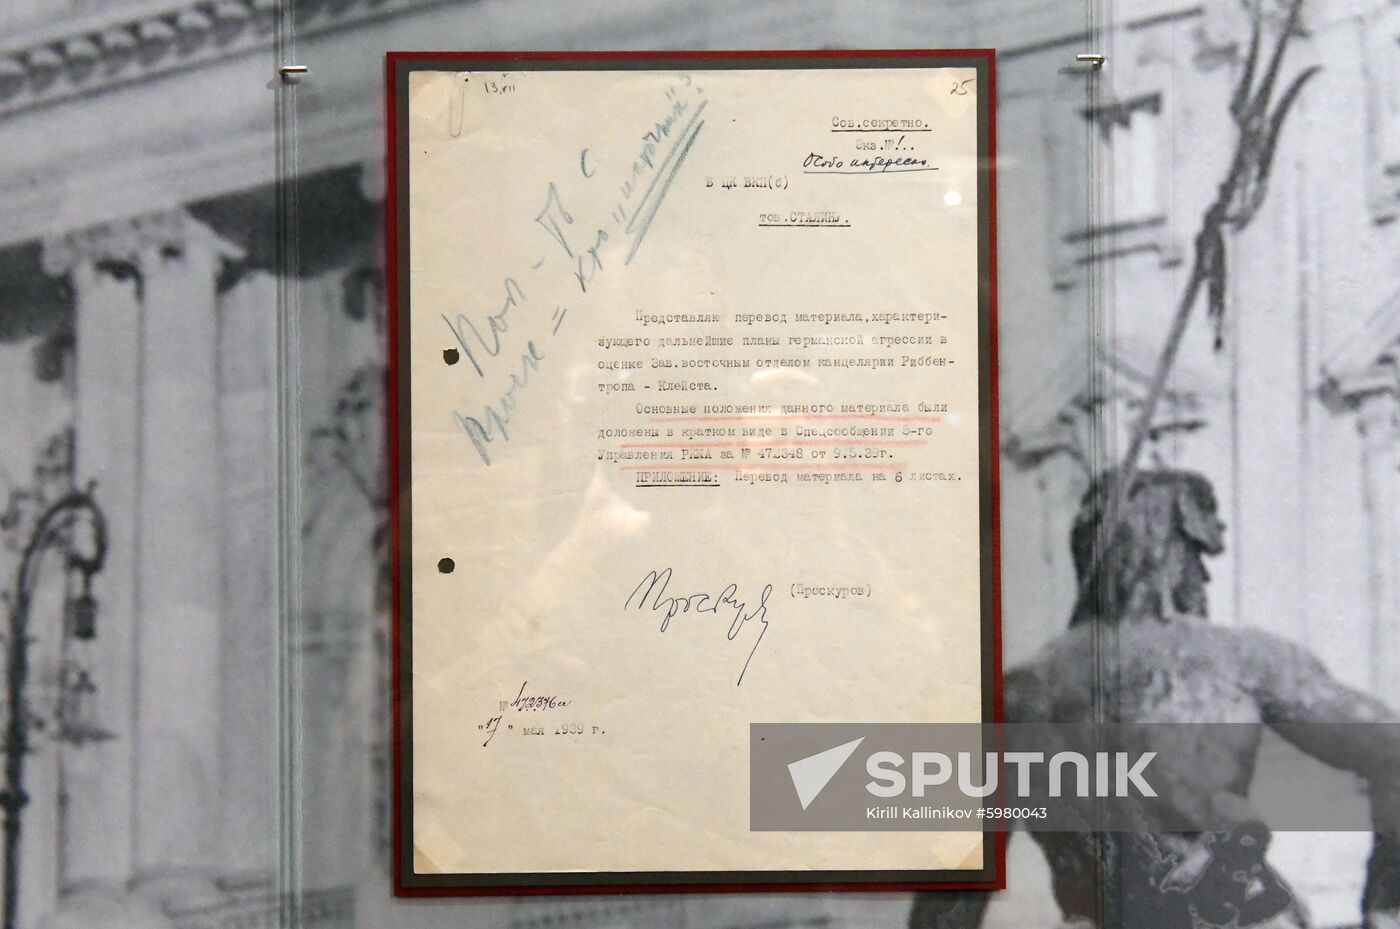 13.VII
25
Сов.секретно.
Экз.№1..
Особо интересно.
В ЦК ВКП(б)
тов.СТАЛИНУ.
кто "источник"?
Представляю перевод материала,характери-
зующего дальнейшие планы германской агрессии в
оценке Зав.восточным отделом канцелярии Риббен-
тропа - Клейста.
Основные положения данного материала были
доложены в кратком виде в Спецсообщении 5-го
Управления РККА за № 472348 от 9.5.39г.
ПРИЛОЖЕНИЕ: Перевод материала на 6 листах.
Проскуров
(Проскуров)
№ 472376сс
"17" мая 1939 г.
SPUTNIK
Kirill Kallinikov © 5980043